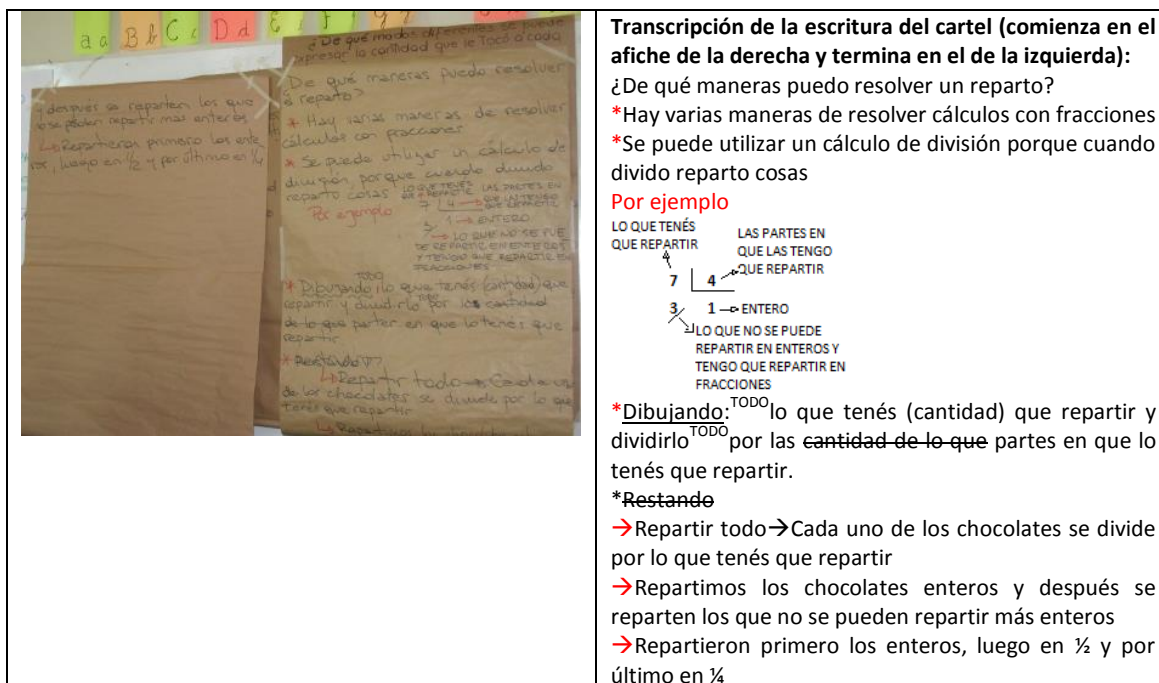 a a B b C c D d
y después se reparten los que
no se pueden repartir mas enteros
↳Repartieron primero los ente
ros, luego en 1/2 y por último en 1/4
¿De qué modos diferentes se puede
expresar la cantidad que le tocó a cada
¿De qué maneras puedo resolver
el reparto?
* Hay varias maneras de resolver
cálculos con fracciones
* Se puede utilizar un cálculo de
división, porque cuando divido
reparto cosas
LO QUE TENÉS QUE REPARTIR
LAS PARTES EN QUE LAS TENGO QUE REPARTIR
Por ejemplo
7 4
3 1 → ENTERO
LO QUE NO SE PUE
DE REPARTIR EN ENTEROS
Y TENGO QUE REPARTIR EN
FRACCIONES
TODO
* Dibujando: lo que tenés (cantidad) que
repartir y dividirlo TODO por las cantidad
de lo que partes en que lo tenés que
repartir
* Restando
↳Repartir todo → Cada uno
de los chocolates se divide por lo que
tenés que repartir
↳Repartimos los chocolates
Transcripción de la escritura del cartel (comienza en el
afiche de la derecha y termina en el de la izquierda):
¿De qué maneras puedo resolver un reparto?
*Hay varias maneras de resolver cálculos con fracciones
*Se puede utilizar un cálculo de división porque cuando
divido reparto cosas
Por ejemplo
LO QUE TENÉS
QUE REPARTIR
LAS PARTES EN
QUE LAS TENGO
QUE REPARTIR
7 4
3 1 → ENTERO
LO QUE NO SE PUEDE
REPARTIR EN ENTEROS Y
TENGO QUE REPARTIR EN
FRACCIONES
*Dibujando:TODO lo que tenés (cantidad) que repartir y
dividirloTODO por las cantidad de lo que partes en que lo
tenés que repartir.
*Restando
→Repartir todo→Cada uno de los chocolates se divide
por lo que tenés que repartir
→Repartimos los chocolates enteros y después se
reparten los que no se pueden repartir más enteros
→Repartieron primero los enteros, luego en ½ y por
último en ¼